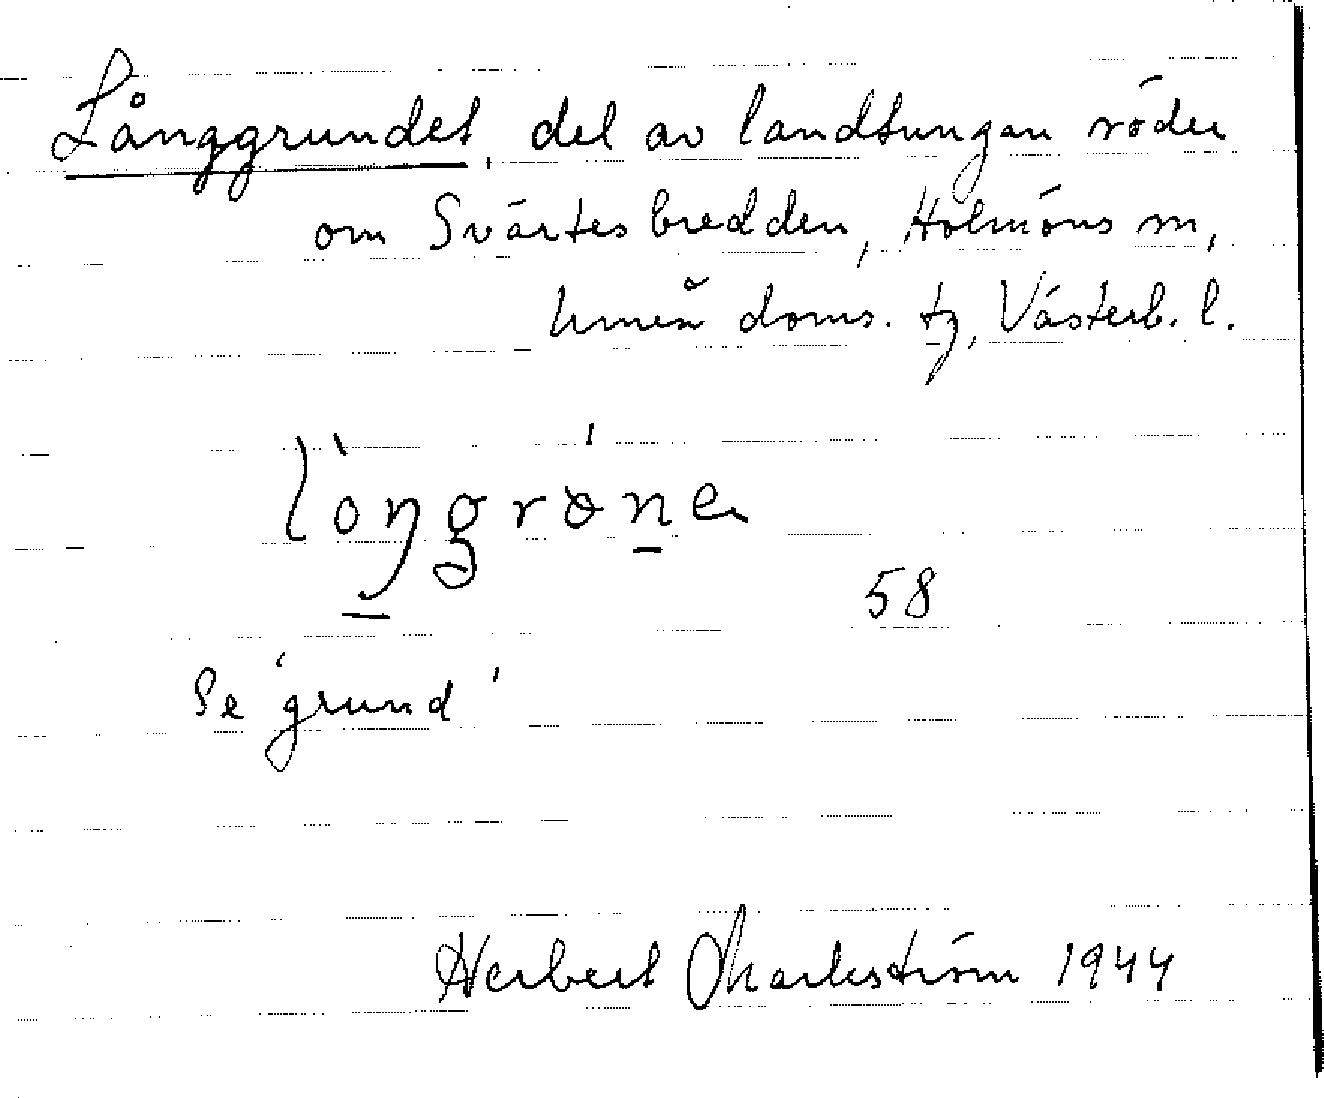 Långgrundet, del av landtungan söder
om Svartesbredden, Holmöns sn,
Umeå doms. tg, Västerb. l.
lòŋgrɵ́ne
58
Se 'grund'
Herbert Markström 1944